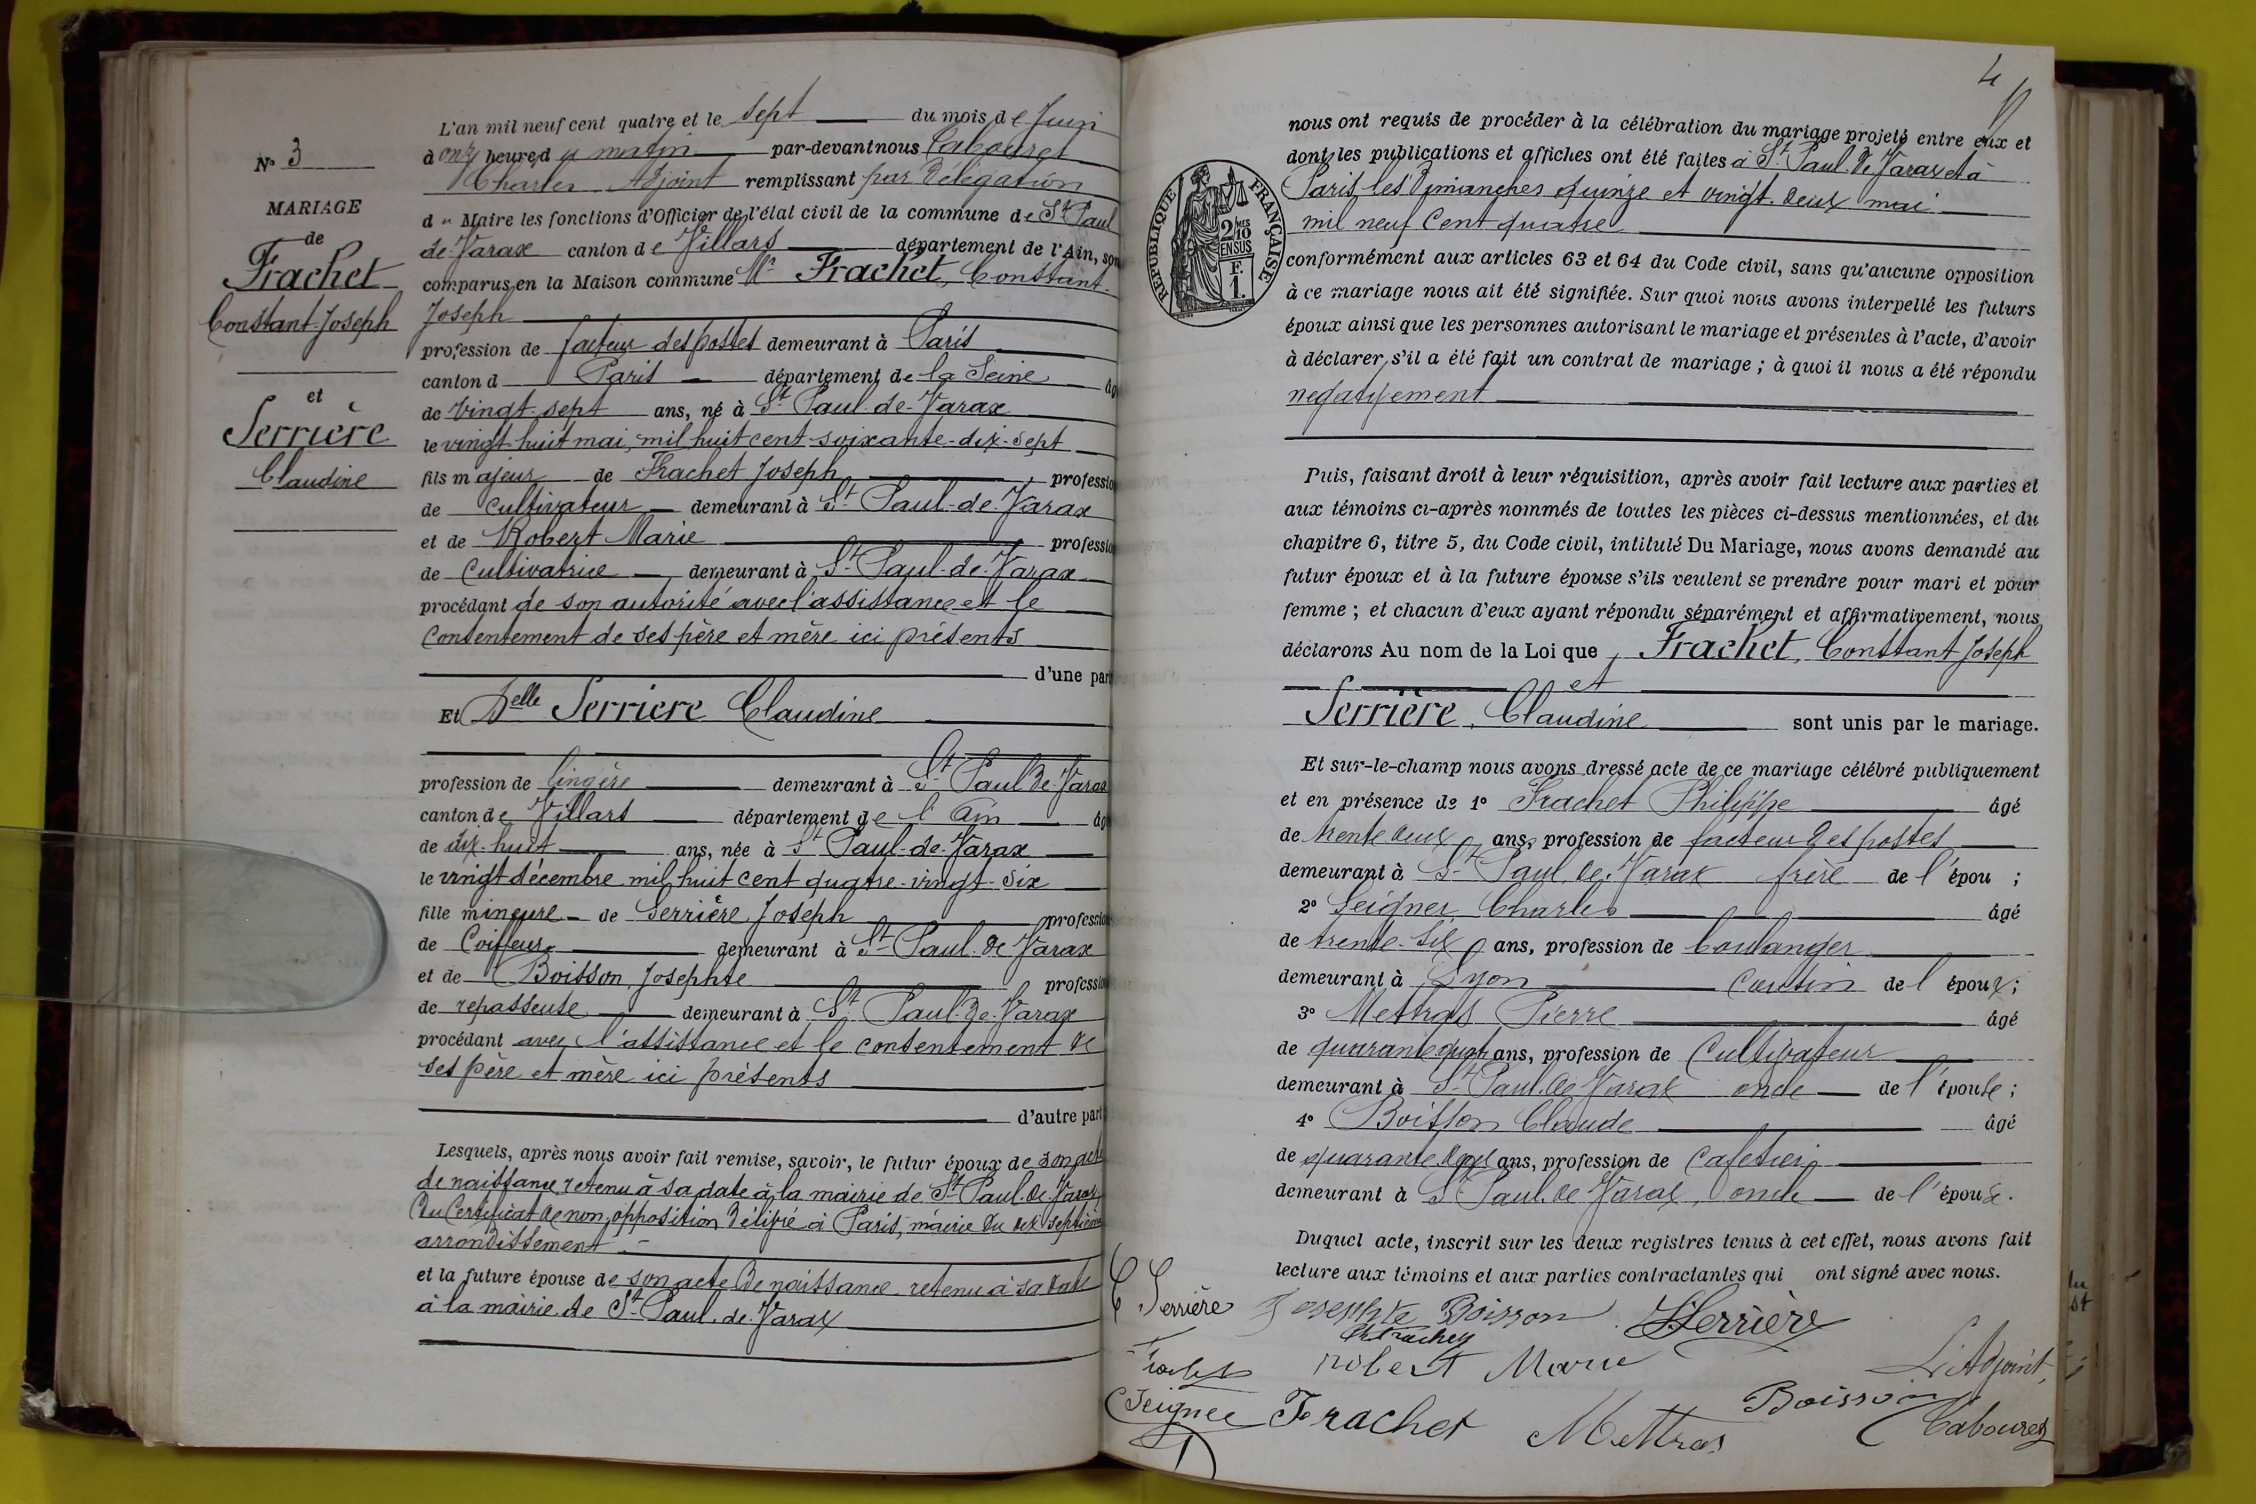 N° 3
MARIAGE
de
Frachet
Constant-Joseph
et
Serrière
Claudine
L'an mil neuf cent quatre et le sept du mois de Juin
à onze heures du matin par-devant nous Cabouret
Charles Adjoint remplissant par délégation
du Maire les fonctions d'Officier de l'état civil de la commune de St Paul
de-Varax canton de Villars département de l'Ain, son
comparus en la Maison commune Mr Frachet, Constant-
Joseph
profession de facteur des postes demeurant à Paris
canton d Paris département de la Seine âg
de vingt-sept ans, né à St Paul-de-Varax
le vingt-huit mai, mil huit cent soixante-dix-sept
fils majeur de Frachet Joseph professio
de cultivateur demeurant à St Paul-de-Varax
et de Robert Marie professio
de Cultivatrice demeurant à St Paul-de-Varax
procédant de son autorité avec l'assistance et le
consentement de ses père et mère ici présents
d'une part
Et Delle Serriere Claudine
profession de lingère demeurant à St Paul de Varax
canton de Villars département de l'Ain âg
de dix-huit ans, née à St Paul-de-Varax
le vingt décembre mil huit cent quatre-vingt-six
fille mineure de Serrière Joseph profession
de Coiffeur demeurant à St Paul de Varax
et de Boisson Josephte profession
de repasseuse demeurant à St Paul-de-Varax
procédant avec l'assistance et le consentement de
ses père et mère ici présents
d'autre part
Lesquels, après nous avoir fait remise, savoir, le futur époux de son acte
de naissance retenu à sa date à la mairie de St Paul de Varax
Du Certificat de non opposition délivré à Paris, mairie du dix septième
arrondissement
et la future épouse de son acte de naissance retenu à sa date
à la mairie de St Paul. de Varax
4
nous ont requis de procéder à la célébration du mariage projeté entre eux et
dont les publications et affiches ont été faites à St Paul de Varax et à
Paris les Dimanches quinze et vingt-deux mai
mil neuf cent quatre
RÉPUBLIQUE FRANÇAISE
2/10
EN SUS
F.
1.
conformément aux articles 63 et 64 du Code civil, sans qu'aucune opposition
à ce mariage nous ait été signifiée. Sur quoi nous avons interpellé les futurs
époux ainsi que les personnes autorisant le mariage et présentes à l'acte, d'avoir
à déclarer, s'il a été fait un contrat de mariage ; à quoi il nous a été répondu
negativement
Puis, faisant droit à leur réquisition, après avoir fait lecture aux parties et
aux témoins ci-après nommés de toutes les pièces ci-dessus mentionnées, et du
chapitre 6, titre 5, du Code civil, intitulé Du Mariage, nous avons demandé au
futur époux et à la future épouse s'ils veulent se prendre pour mari et pour
femme ; et chacun d'eux ayant répondu séparément et affirmativement, nous
déclarons Au nom de la Loi que Frachet, Constant Joseph
et
Serrière, Claudine sont unis par le mariage.
Et sur-le-champ nous avons dressé acte de ce mariage célébré publiquement
et en présence de 1° Frachet Philippe âgé
de trente deux ans, profession de facteur des postes
demeurant à St Paul de Varax frère de l'épou ;
2° Seigner Charles âgé
de trente-six ans, profession de boulanger
demeurant à Lyon cousin de l'époux ;
3° Mettras Pierre âgé
de quarante ans, profession de Cultivateur
demeurant à St Paul de Varax oncle de l'épouse ;
4° Boisson Claude âgé
de quarante ans, profession de Cafetier
demeurant à St Paul de Varax, oncle de l'épouse.
Duquel acte, inscrit sur les deux registres tenus à cet effet, nous avons fait
lecture aux témoins et aux parties contractantes qui ont signé avec nous.
C Serrière Josephte Boisson J Serrière
Frachet robert Marie L'Adjoint,
Seigner Frachet Mettras Boisson Cabouret